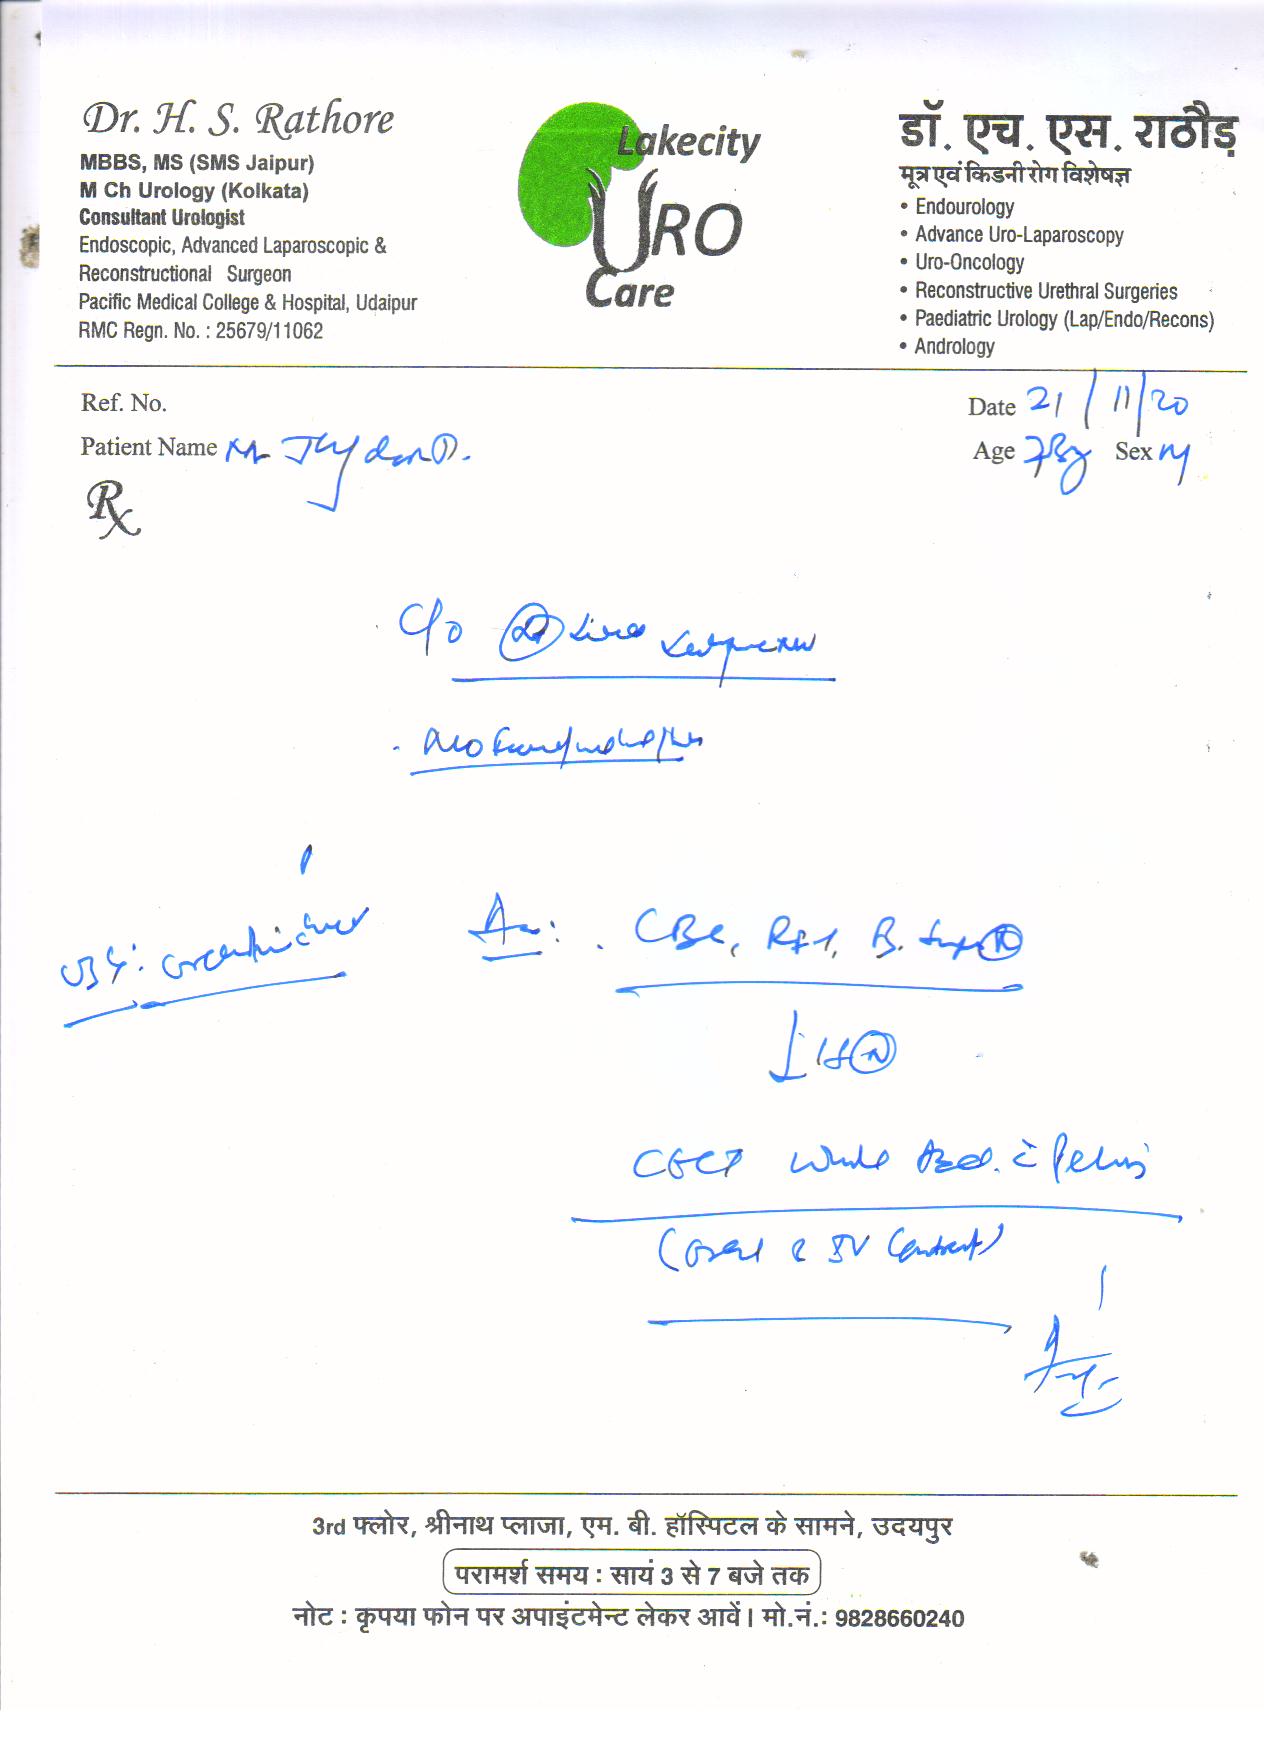 Dr. H. S. Rathore
MBBS, MS (SMS Jaipur)
M Ch Urology (Kolkata)
Consultant Urologist
Endoscopic, Advanced Laparoscopic &
Reconstructional Surgeon
Pacific Medical College & Hospital, Udaipur
RMC Regn. No. : 25679/11062
Lakecity
URO
Care
डॉ. एच. एस. राठौड़
मूत्र एवं किडनी रोग विशेषज्ञ
• Endourology
• Advance Uro-Laparoscopy
• Uro-Oncology
• Reconstructive Urethral Surgeries
• Paediatric Urology (Lap/Endo/Recons)
• Andrology
Ref. No.
Date 21/11/20
Patient Name
Age Sex M
Rx
C/o
CBC, RFT, B.
CECT Whole Abd. c̄ Pelvis
(Oral & IV Contrast)
3rd फ्लोर, श्रीनाथ प्लाजा, एम. बी. हॉस्पिटल के सामने, उदयपुर
परामर्श समय : सायं 3 से 7 बजे तक
नोट : कृपया फोन पर अपाइंटमेन्ट लेकर आवें। मो.नं.: 9828660240